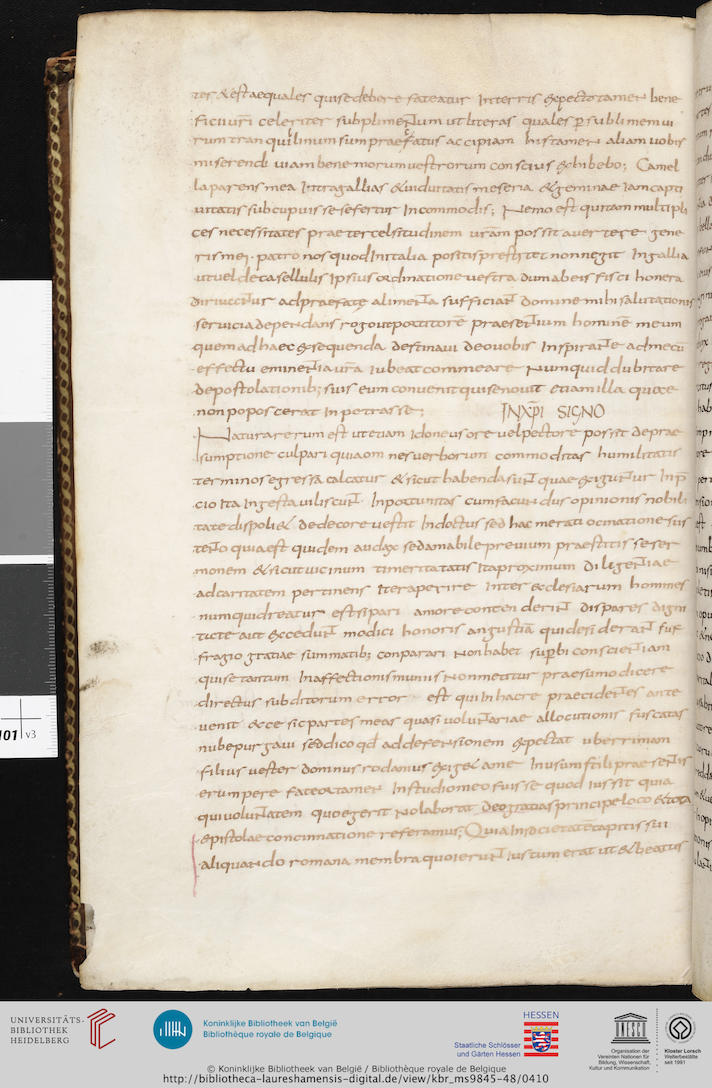 tes & est aequales qui se debere fateatur In terris expecto tamen bene
ficii uri celeriter subplimentum ut literas quales p sublimem ui
rum tranquilinum sum praefatus accipiam his tamen aliam uobis
miserendi uiam bene morum uestrorum conscius exhibebo; Camel
la parens mea Intra gallias & uiduitatis me seria & geminae iam capti
uitatis subcupuis se se fertur Incommodis; Nemo est qui tam multipli
ces necessitates praeter celsitudinem uram possit auertere gene
ris mei patronos quod In italia positis prestitet non negit In gallia
ut uel de casellulis Ipsius ordinatione uestra dum ab eis fisci honera
diriuuntur ad praefate alimenta sufficiant domine mi hi salutationis
seruicia dependans rogo ut portitore praesentium homine meum
quem ad haec exsequenda destinaui deo uobis Inspirante ad mecu
effectu eminentia ura iubeat commeare Numquid dubitare
de postolationib; suis eum conuenit qui se nouit etiam illa quae
non poposcerat Inpetrasse;
IN XPI SIGNO
Natura rerum est ut etiam Idoneus ore uel pectore possit de prae
sumptione culpari quia omnes uerborum commoditas humilitatis
terminos egressa calcatur & sicut habenda sunt quae exiguntur In p
cio Ita Ingesta uiliscunt Inportunitas cum facundus opinionis nobili
tate dispoli& dedecore uestit Indoctus sed hac merati ocinatione sus
tento quia est quidem audax sed amabile preuium praestitis se ser
monem & sicut uicinum timeritatatis Ita proximum diligentiae
ad caritatem pertinens Iter aperire Inter ecclesiarum homines
numquid reatur est si pari amore contenderint dispares digni
tate aut excedunt modici honoris angustia qui desiderant suf
fragio gratiae summatib; conparari Non habet supbi conscientiam
qui se tantum In affectionis munus Non metitur praesumo dicere
directus subditorum error est qui In hac re praecidentes ante
uenit ecce sic partes meas quasi uoluntariae allocutionis fuscatas
nube purgaui sed dico qd ad defensionem expectat uberrimam
filius uester domnus rodanus exig& a me In usum stili praesentis
erumpere fateor tamen In studio meo fuisse quod iussit quia
qui uoluntatem quo egerit Nolaborat deo gratias principe loco & tota
epistolae concinnatione referamus; Quia In societate capitis sui
aliquando romana membra quoierunt iustum erat ut & beatus
101 v3
UNIVERSITÄTS-
BIBLIOTHEK
HEIDELBERG
Koninklijke Bibliotheek van België
Bibliothèque royale de Belgique
HESSEN
Staatliche Schlösser
und Gärten Hessen
UNESCO
Organisation der
Vereinten Nationen für
Bildung, Wissenschaft,
Kultur und Kommunikation
Kloster Lorsch
Welterbestätte
seit 1991
© Koninklijke Bibliotheek van België / Bibliothèque royale de Belgique
http://bibliotheca-laureshamensis-digital.de/view/kbr_ms9845-48/0410